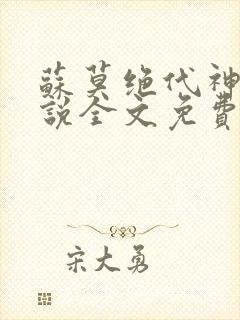 蘇莫绝代神
說全文免費
宋大勇